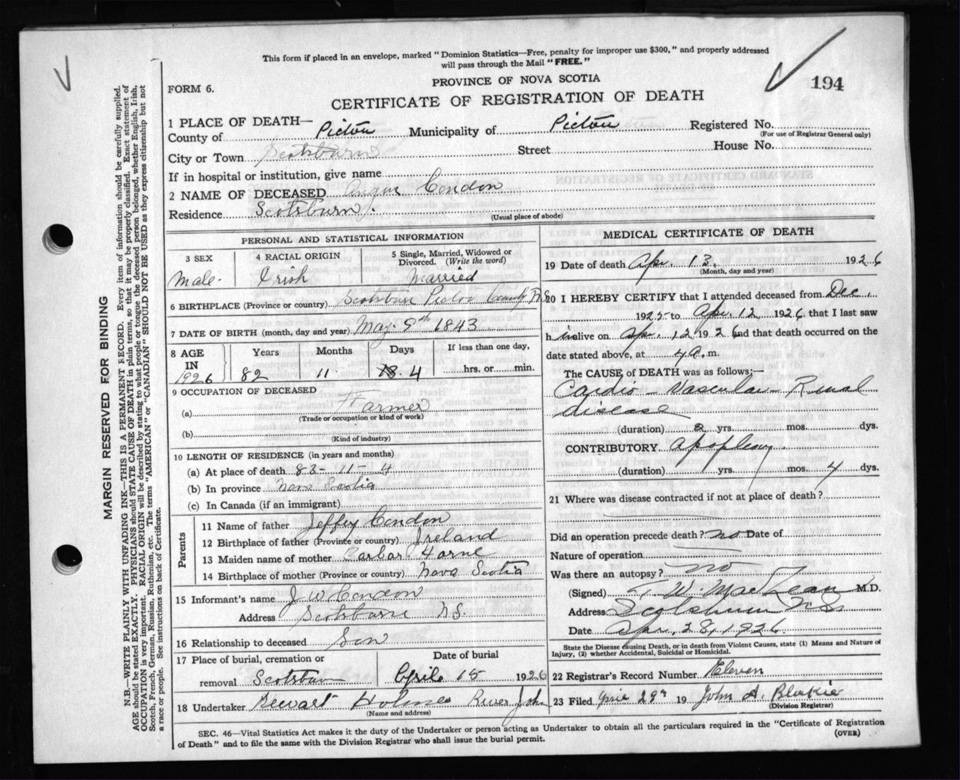 This form if placed in an envelope, marked "Dominion Statistics—Free, penalty for improper use $300," and properly addressed
will pass through the Mail "FREE."
194
FORM 6.
PROVINCE OF NOVA SCOTIA
CERTIFICATE OF REGISTRATION OF DEATH
1 PLACE OF DEATH—
County of Pictou Municipality of Pictou Registered No.
(For use of Registrar General only)
City or Town Scotsburn Street House No.
If in hospital or institution, give name
2 NAME OF DECEASED Condon
Residence Scotsburn
(Usual place of abode)
PERSONAL AND STATISTICAL INFORMATION
3 SEX 4 RACIAL ORIGIN 5 Single, Married, Widowed or Divorced. (Write the word)
Male Irish Married
6 BIRTHPLACE (Province or country) Scotsburn Pictou County N.S.
7 DATE OF BIRTH (month, day and year) May 9th 1843
8 AGE IN 1926 Years Months Days If less than one day,
82 11 4 hrs. or min.
9 OCCUPATION OF DECEASED
(a) Farmer
(Trade or occupation or kind of work)
(b)
(Kind of industry)
10 LENGTH OF RESIDENCE (in years and months)
(a) At place of death 83-11-4
(b) In province Nova Scotia
(c) In Canada (if an immigrant)
Parents
11 Name of father Jeffey Condon
12 Birthplace of father (Province or country) Ireland
13 Maiden name of mother
14 Birthplace of mother (Province or country) Nova Scotia
15 Informant's name J W Condon
Address Scotsburn N.S.
16 Relationship to deceased Son
17 Place of burial, cremation or removal Scotsburn Date of burial April 15 1926
18 Undertaker Holmes River John
(Name and address)
MEDICAL CERTIFICATE OF DEATH
19 Date of death Apr. 13. 1926
(Month, day and year)
20 I HEREBY CERTIFY that I attended deceased from Dec.
1925 to Apr. 12 1926 that I last saw
h im alive on Apr. 12 1926 and that death occurred on the
date stated above, at 4 a.m.
The CAUSE OF DEATH was as follows;—
Cardio-Vascular-Renal
disease
(duration) 2 yrs. mos. dys.
CONTRIBUTORY Apoplexy
(duration) yrs. mos. 4 dys.
21 Where was disease contracted if not at place of death?
Did an operation precede death? no Date of
Nature of operation
Was there an autopsy? no
(Signed) W. MacLean M.D.
Address Scotsburn N.S.
Date Apr. 28, 1926
State the Disease causing Death, or in death from Violent Causes, state (1) Means and Nature of
Injury, (2) whether Accidental, Suicidal or Homicidal.
22 Registrar's Record Number Eleven
23 Filed 29th 19 John A. Blaikie
(Division Registrar)
SEC. 46—Vital Statistics Act makes it the duty of the Undertaker or person acting as Undertaker to obtain all the particulars required in the "Certificate of Registration
of Death" and to file the same with the Division Registrar who shall issue the burial permit.
(OVER)
MARGIN RESERVED FOR BINDING
N.B.—WRITE PLAINLY WITH UNFADING INK—THIS IS A PERMANENT RECORD. Every item of information should be carefully supplied.
AGE should be stated EXACTLY. PHYSICIANS should STATE CAUSE OF DEATH in plain terms, so that it may be properly classified. Exact statement of
OCCUPATION is very important. RACIAL ORIGIN will be described by stating to what people or tongue the deceased person belonged, whether English, Irish,
Scotch, French, German, Russian, Ruthenian, etc. The terms "AMERICAN" or "CANADIAN" SHOULD NOT BE USED as they express citizenship but not
a race or people. See instructions on back of Certificate.